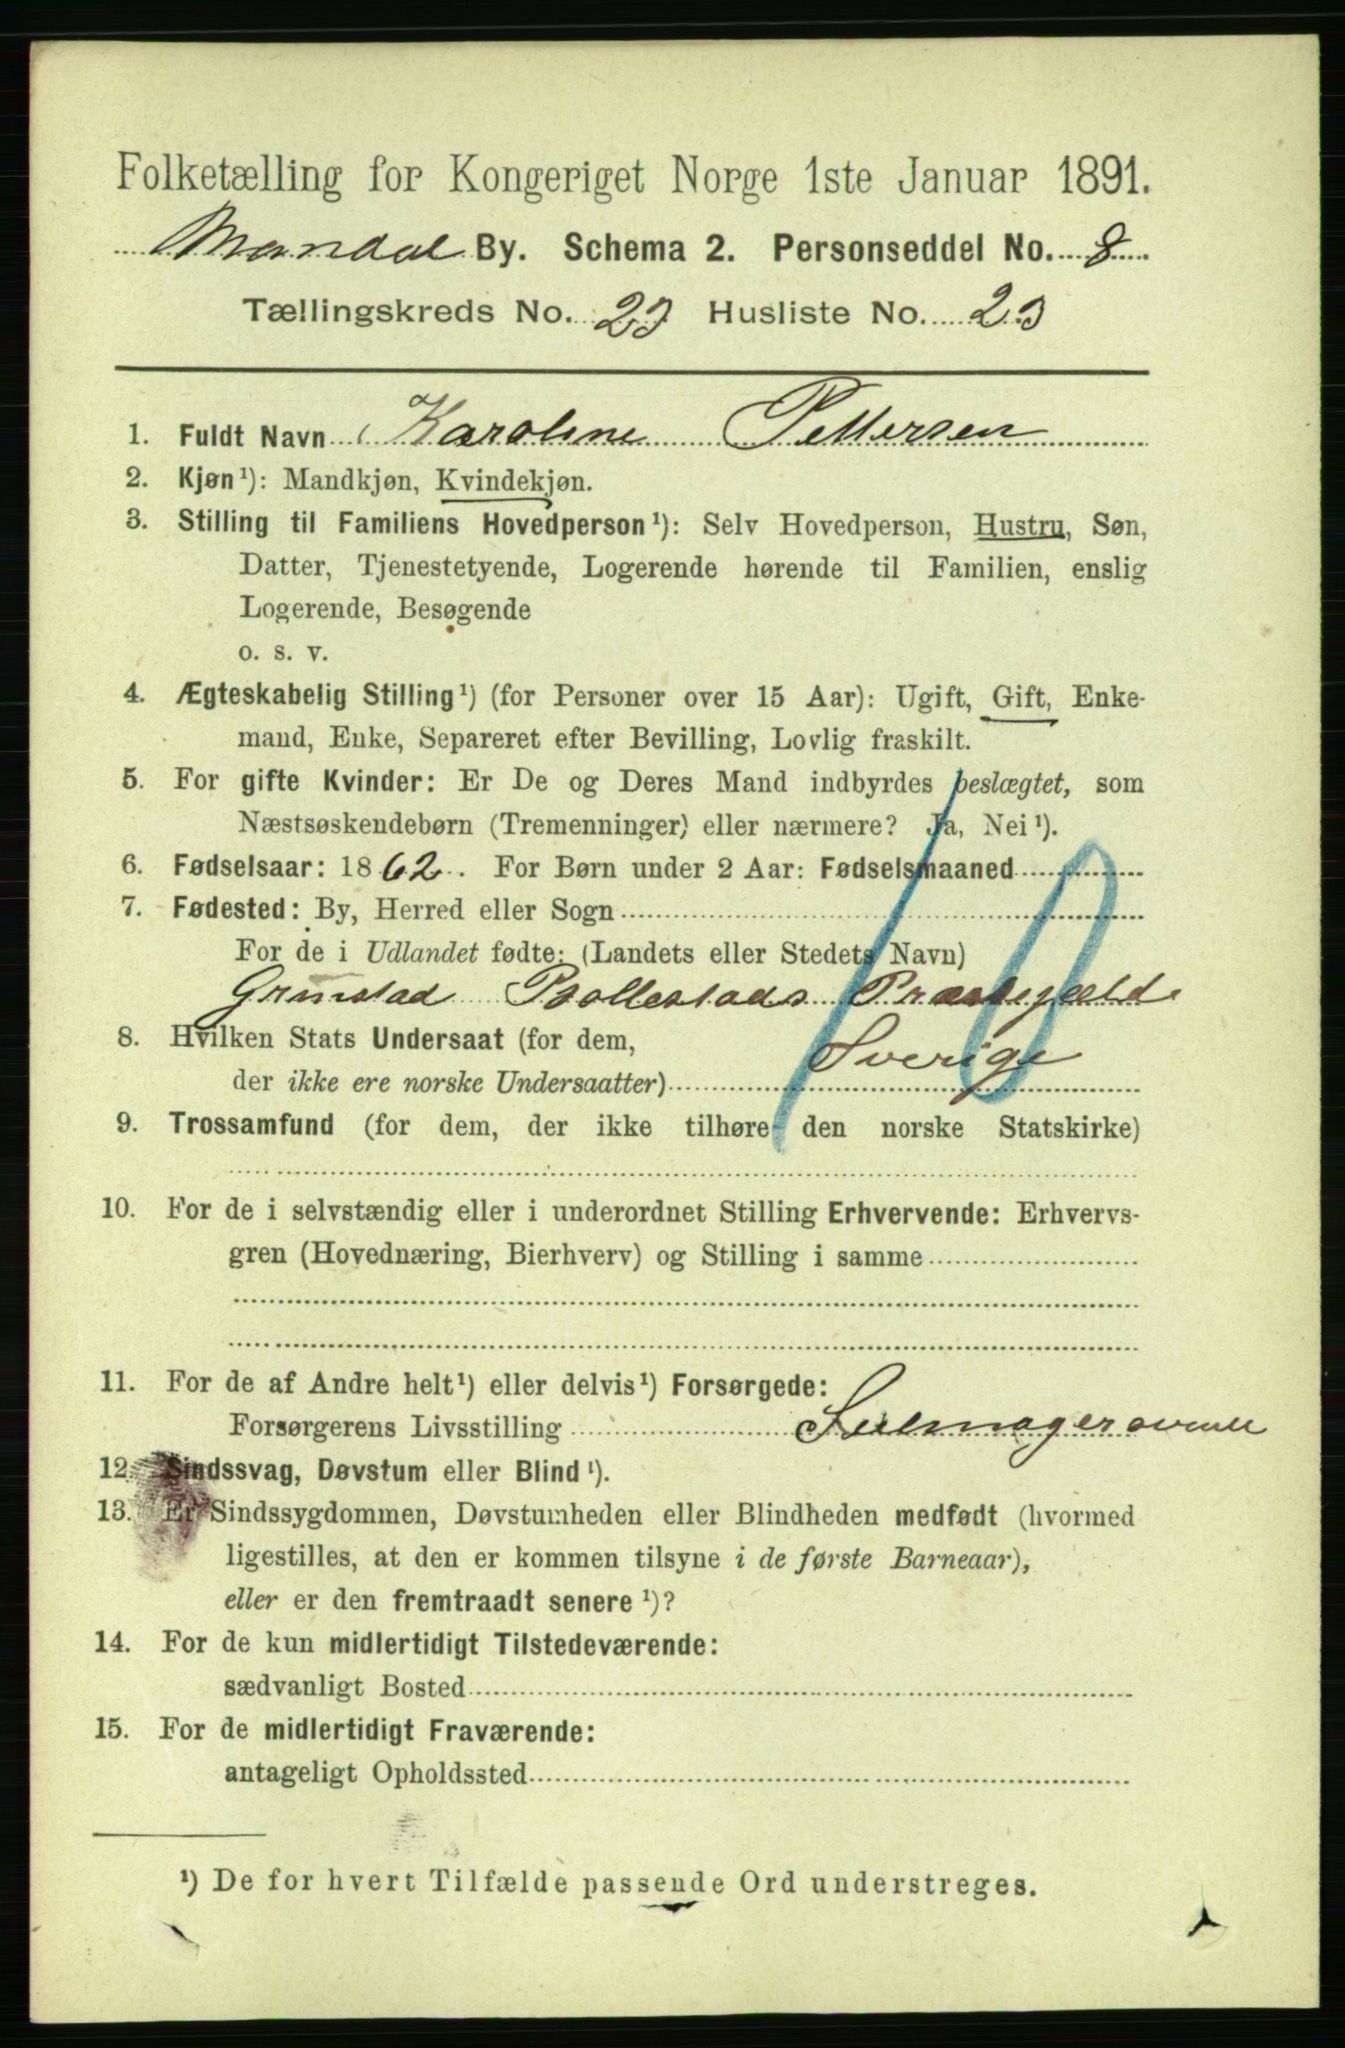 Folketælling for Kongeriget Norge 1ste Januar 1891.
Mandal By. Schema 2. Personseddel No. 8
Tællingskreds No. 23 Husliste No. 23
1. Fuldt Navn Karoline Pettersen
2. Kjøn¹): Mandkjøn, Kvindekjøn.
3. Stilling til Familiens Hovedperson¹): Selv Hovedperson, Hustru, Søn,
Datter, Tjenestetyende, Logerende hørende til Familien, enslig
Logerende, Besøgende
o. s. v.
4. Ægteskabelig Stilling¹) (for Personer over 15 Aar): Ugift, Gift, Enke-
mand, Enke, Separeret efter Bevilling, Lovlig fraskilt.
5. For gifte Kvinder: Er De og Deres Mand indbyrdes beslægtet, som
Næstsøskendebørn (Tremenninger) eller nærmere? Ja, Nei¹).
6. Fødselsaar: 1862. For Børn under 2 Aar: Fødselsmaaned
7. Fødested: By, Herred eller Sogn
For de i Udlandet fødte: (Landets eller Stedets Navn)
Grimstad Præstegjæld
10
8. Hvilken Stats Undersaat (for dem,
der ikke ere norske Undersaatter) Sverige
9. Trossamfund (for dem, der ikke tilhøre den norske Statskirke)
10. For de i selvstændig eller i underordnet Stilling Erhvervende: Erhvervs-
gren (Hovednæring, Bierhverv) og Stilling i samme
11. For de af Andre helt¹) eller delvis¹) Forsørgede:
Forsørgerens Livsstilling
12. Sindssvag, Døvstum eller Blind¹).
13. Er Sindssygdommen, Døvstumheden eller Blindheden medfødt (hvormed
ligestilles, at den er kommen tilsyne i de første Barneaar),
eller er den fremtraadt senere¹)?
14. For de kun midlertidigt Tilstedeværende:
sædvanligt Bosted
15. For de midlertidigt Fraværende:
antageligt Opholdssted
¹) De for hvert Tilfælde passende Ord understreges.